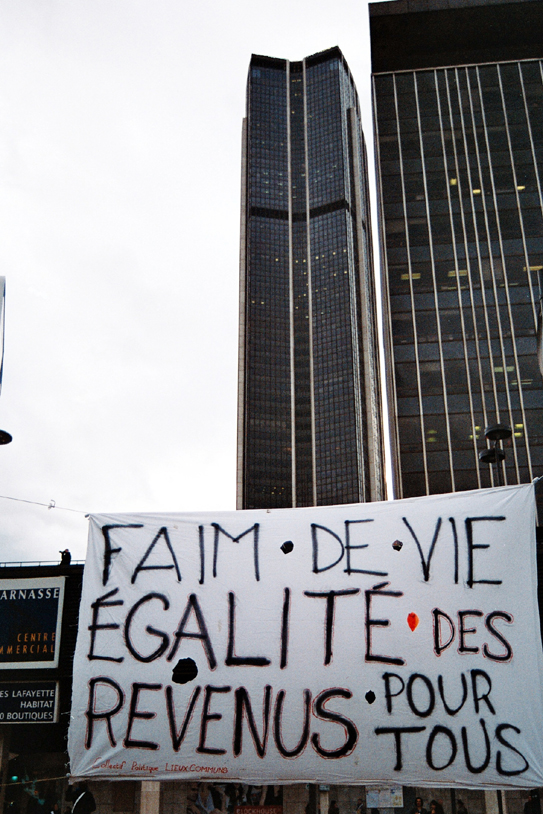 FAIM·DE·VIE
ÉGALITÉ·DES
REVENUS·POUR
TOUS
Politique LIEUX COMMUNS
ARNASSE
CENTRE
MMERCIAL
ES LAFAYETTE
HABITAT
0 BOUTIQUES